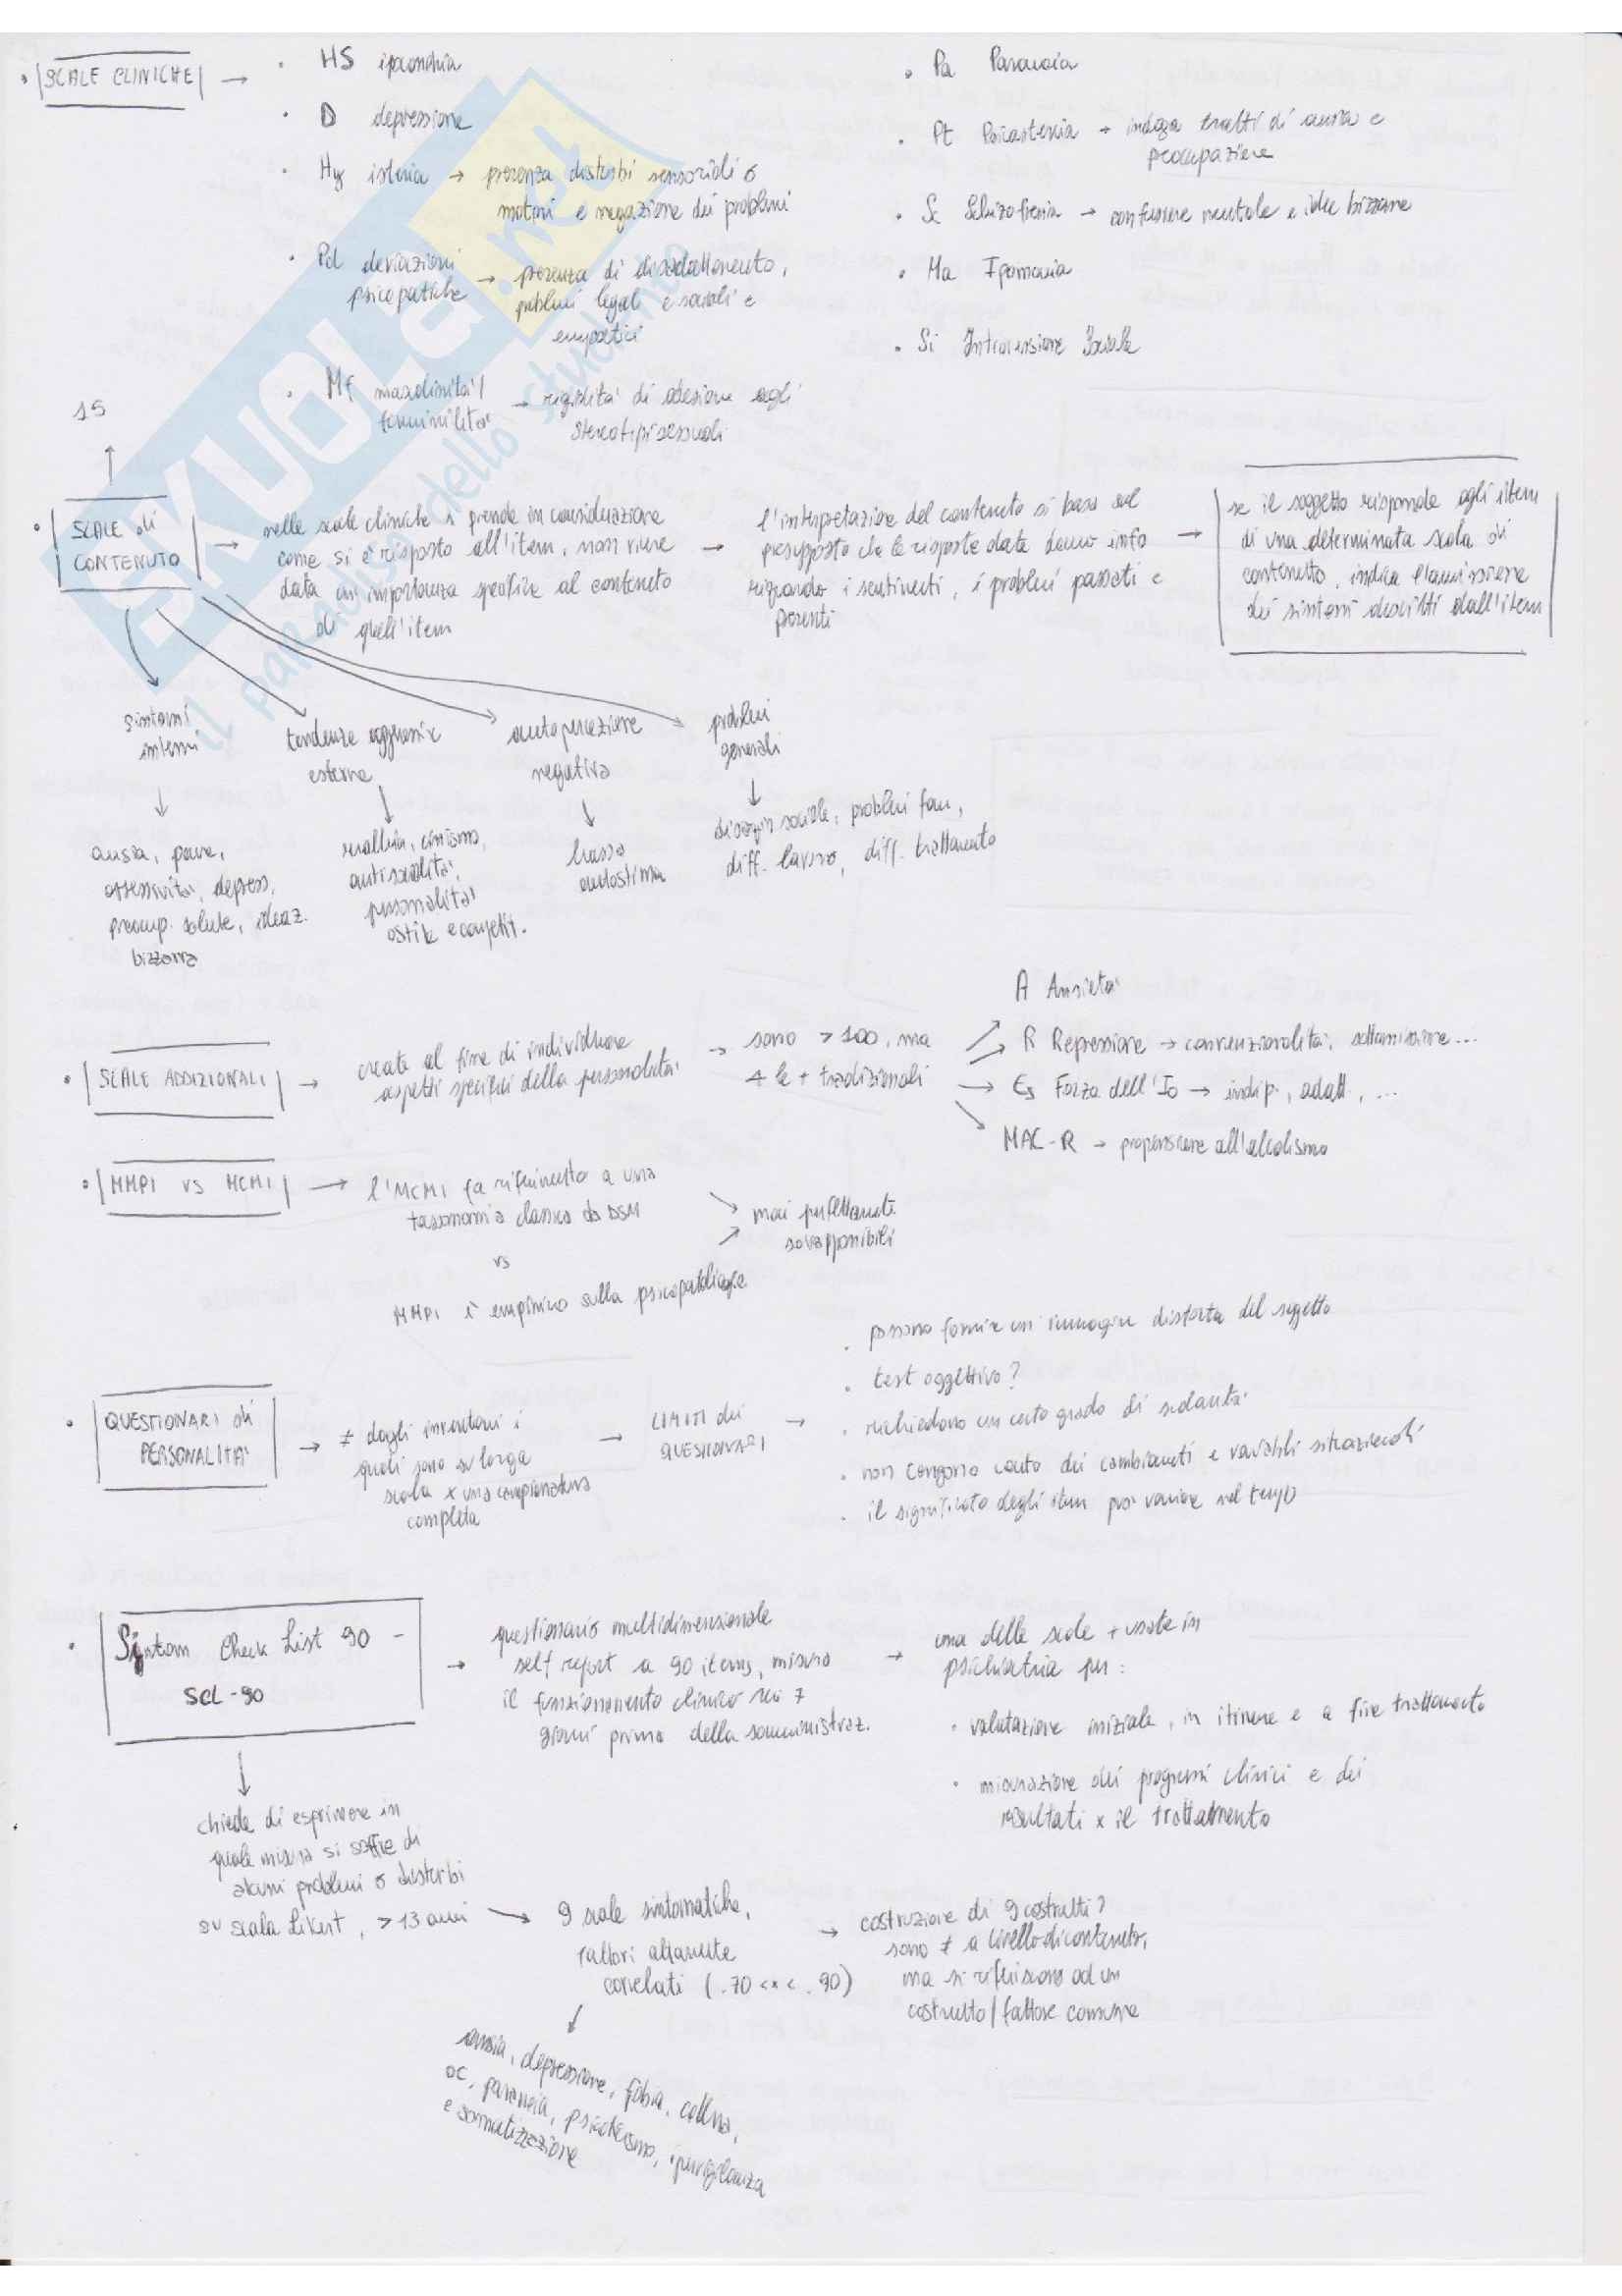 SCALE CLINICHE →
· HS ipocondria
· D depressione
· Hy isteria → presenza disturbi sensoriali o
motori e negazione dei problemi
· Pd deviazioni
psicopatiche → presenza di disadattamento,
problemi legali e sociali e
empatici
· Mf mascolinità/
femminilità → rigidità di adesione agli
stereotipi sessuali
· Pa Paranoia
· Pt Psicastenia → indaga tratti di ansia e
preocupazione
· Sc Schizofrenia → confusione mentale e idee bizzarre
· Ma Ipomania
· Si Introversione Sociale
15
SCALE di
CONTENUTO →
nelle scale cliniche si prende in considerazione
come si è risposto all'item, non viene
data un'importanza specifica al contenuto
di quell'item
→ l'interpretazione del contenuto si basa sul
presupposto che le risposte date danno info
riguardo i sentimenti, i problemi passati e
presenti
→ se il soggetto risponde agli item
di una determinata scala di
contenuto, indica l'ammissione
dei sintomi descritti dall'item
sintomi
interni
↓
ansia, paure,
ossessività, depress,
preocup. salute, ideaz.
bizzarra
tendenze aggressive
esterne
↓
rabbia, cinismo,
antisocialità,
personalità
ostile e competit.
autopercezione
negativa
↓
bassa
autostima
problemi
generali
↓
disagio sociale, problemi fam,
diff. lavoro, diff. trattamento
SCALE ADDIZIONALI →
create al fine di individuare
aspetti specifici della personalità
→ sono > 100, ma
4 le + tradizionali
A Ansietà
R Repressione → convenzionalità, sottomissione...
Es Forza dell'Io → indip, adatt, ...
MAC-R → propensione all'alcolismo
MMPI vs MCMI →
l'MCMI fa riferimento a una
tassonomia classica da DSM
vs
MMPI è empirico sulla psicopatologia
mai perfettamente
sovrapponibili
QUESTIONARI di
PERSONALITÀ →
≠ dagli inventari i
quali sono su larga
scala x una campionatura
completa
→ LIMITI dei
QUESTIONARI →
· possono fornire un immagine distorta del soggetto
· test oggettivo?
· richiedono un certo grado di scolarità
· non tengono conto dei cambiamenti e variabili situazionali
· il significato degli item può variare nel tempo
Sintom Check List 90 -
SCL-90
→ questionario multidimensionale
self report a 90 items, misura
il funzionamento clinico nei 7
giorni prima della somministraz.
→ una delle scale + usate in
psichiatria per:
· valutazione iniziale, in itinere e a fine trattamento
· misurazione dei progressi clinici e dei
risultati x il trattamento
chiede di esprimere in
quale misura si soffre di
alcuni problemi o disturbi
su scala Likert, > 13 anni →
9 scale sintomatiche,
fattori altamente
correlati (.70 <x< .90)
→ costruzione di 9 costrutti?
sono ≠ a livello di contenuto,
ma si riferiscono ad un
costrutto/fattore comune
ansia, depressione, fobia, collera,
oc, paranoia, psicoticismo, ipervigilanza
e somatizzazione
SKUOLA.net
il paradiso dello studente